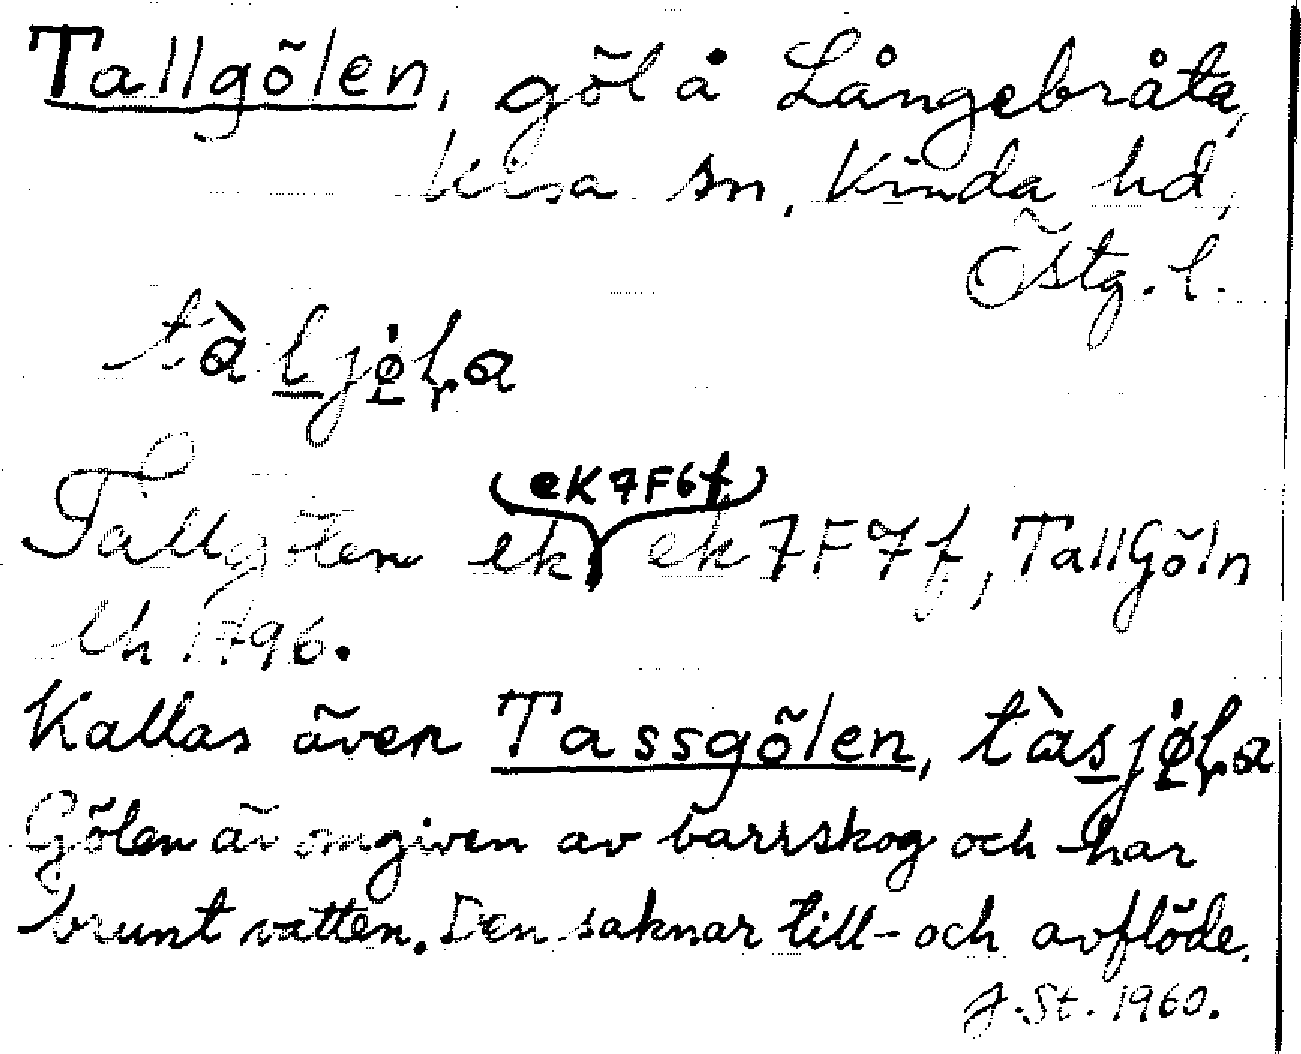 Tallgölen, göl å Långebråta,
Kisa sn, Kinda hd,
Östg. l.
tàljø̣̇ḷa
Tallgölen ek, ek7F6f ek7F7f, TallGöln
Lh 1796.
Kallas även Tassgölen, tàsjø̣̇ḷa
Gölen är omgiven av barrskog och har
brunt vatten. Den saknar till- och avflöde.
J. St. 1960.